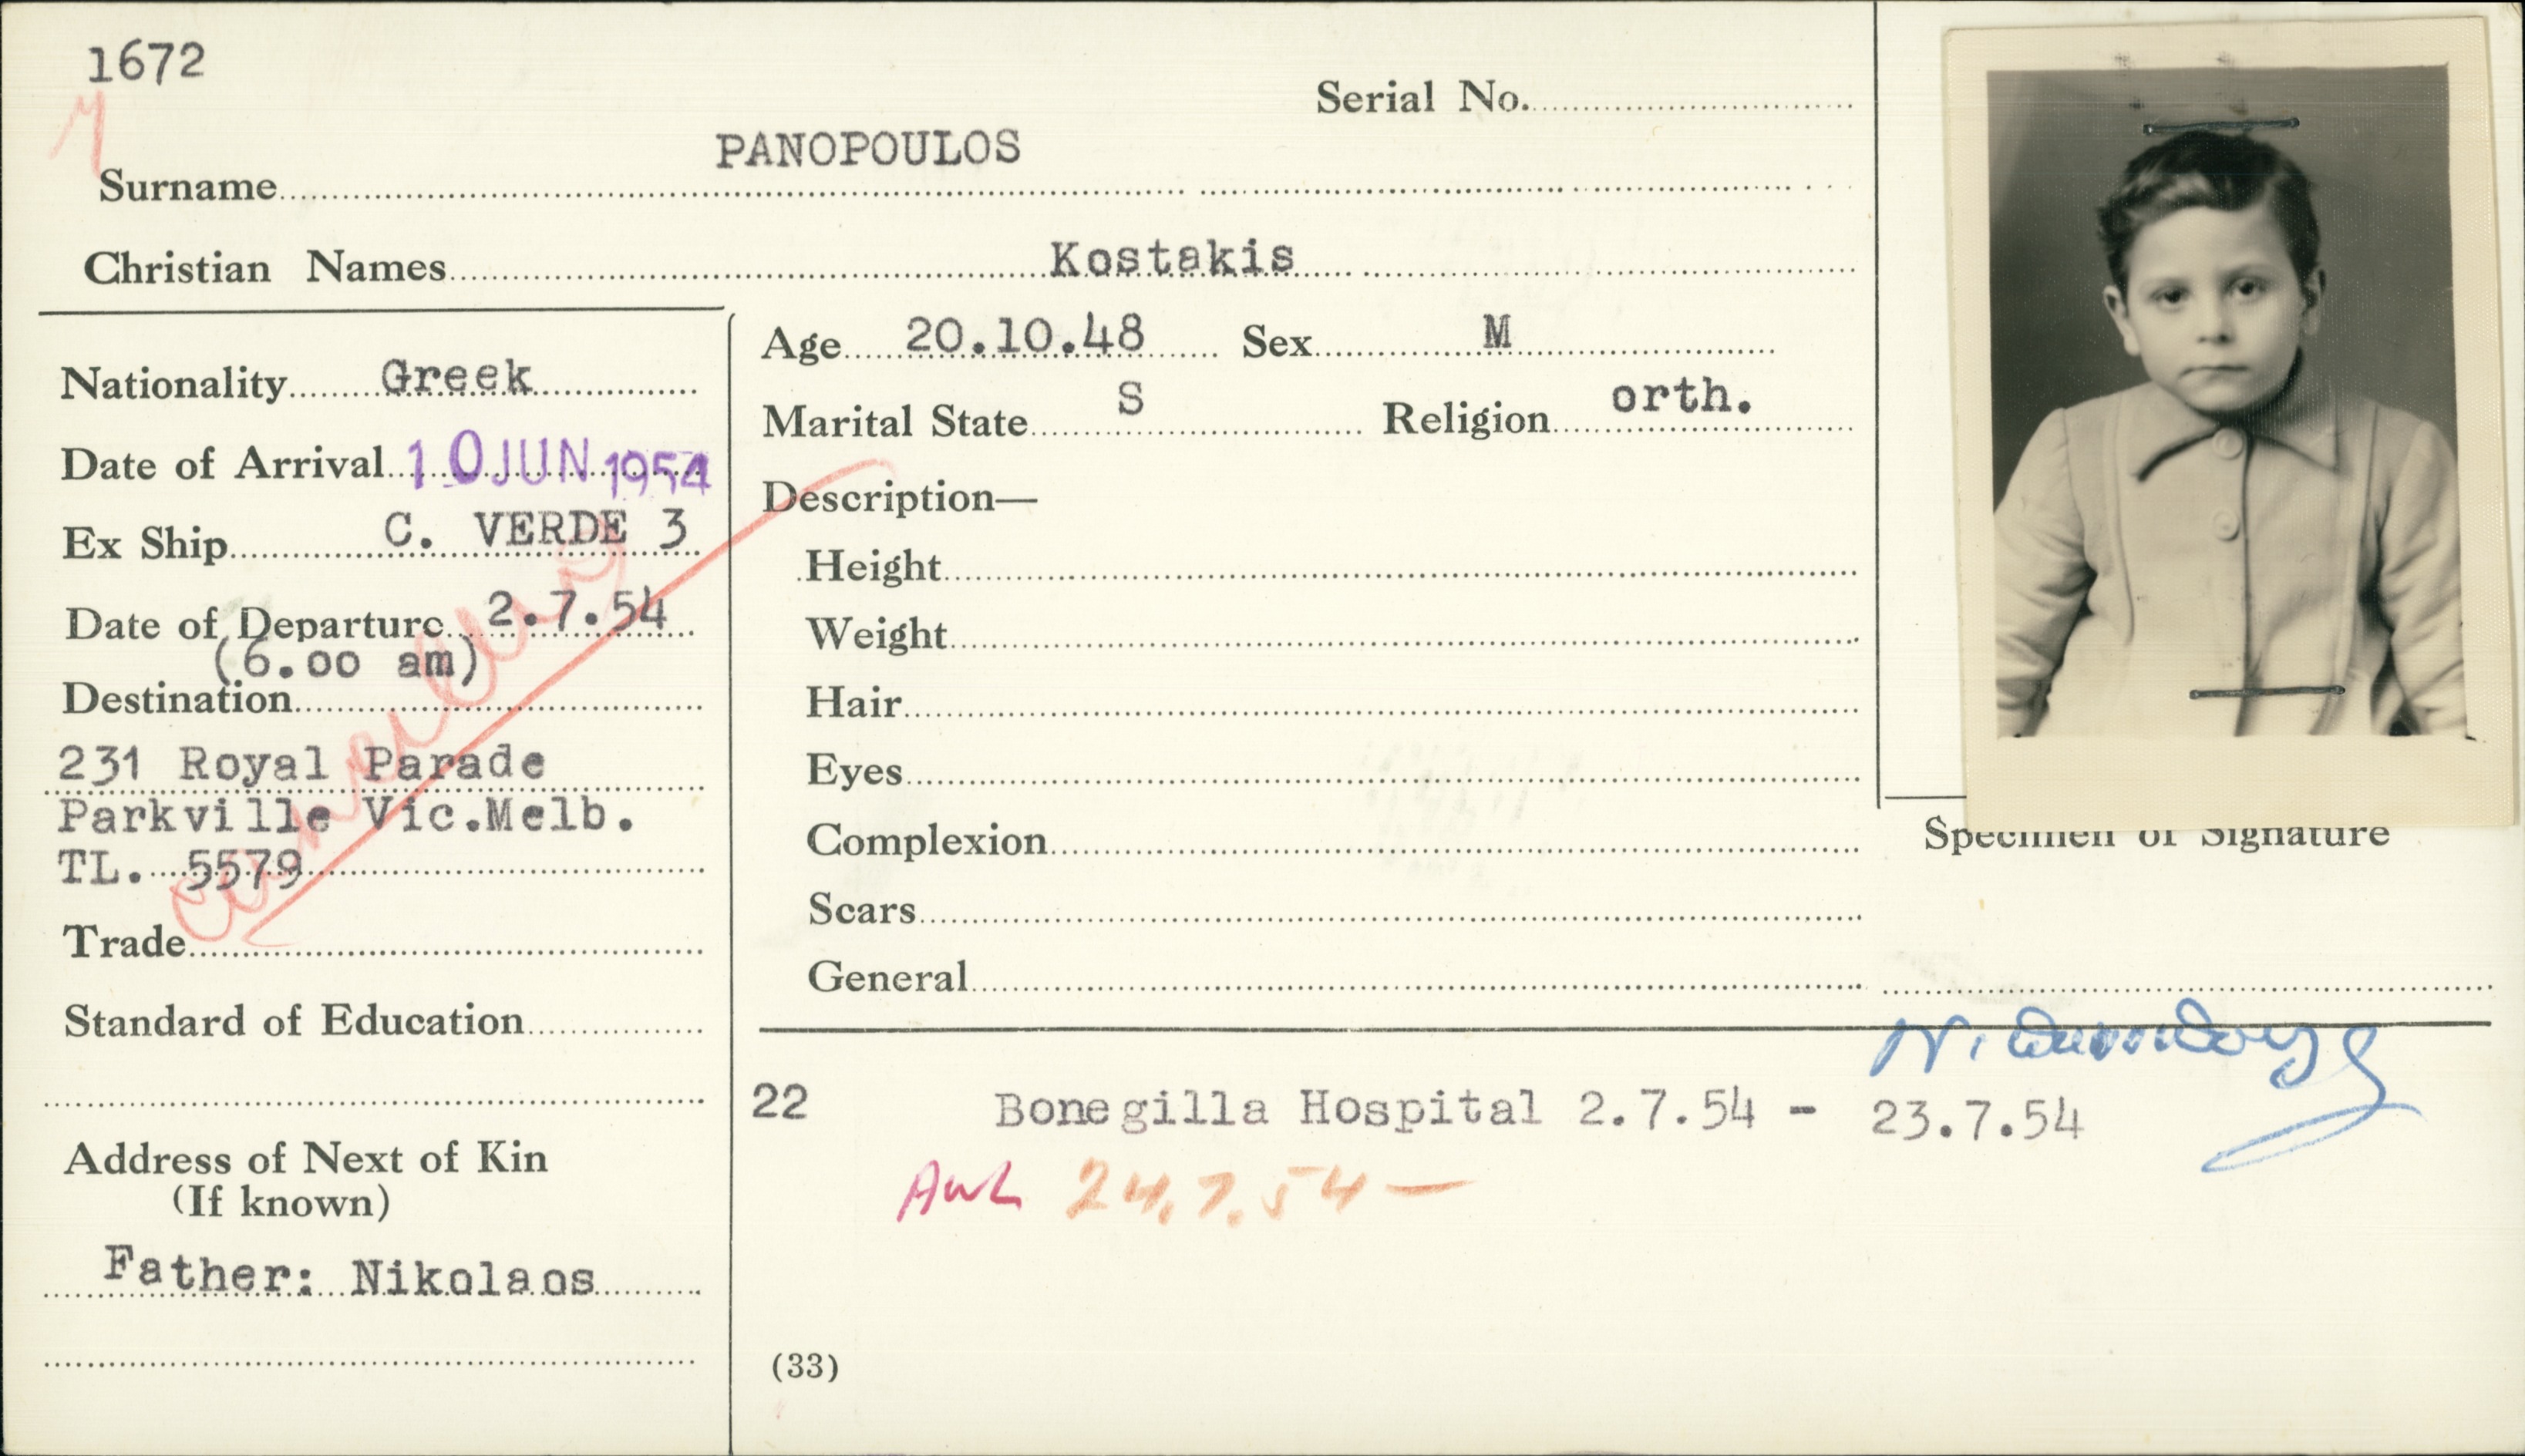 1672
Serial No.
PANOPOULOS
Surname
Christian Names Kostakis
Nationality Greek
Date of Arrival 10 JUN 1954
Ex Ship C. VERDE 3
Date of Departure 2.7.54
(6.00 am)
Destination
231 Royal Parade
Parkville Vic.Melb.
TL. 5579
cancelled
Trade
Standard of Education
Address of Next of Kin
(If known)
Father: Nikolaos
Age 20.10.48 Sex M
Marital State S Religion orth.
Description—
Height
Weight
Hair
Eyes
Complexion
Scars
General
Specimen of Signature
22 Bonegilla Hospital 2.7.54 - 23.7.54
AWL 24.7.54 —
(33)